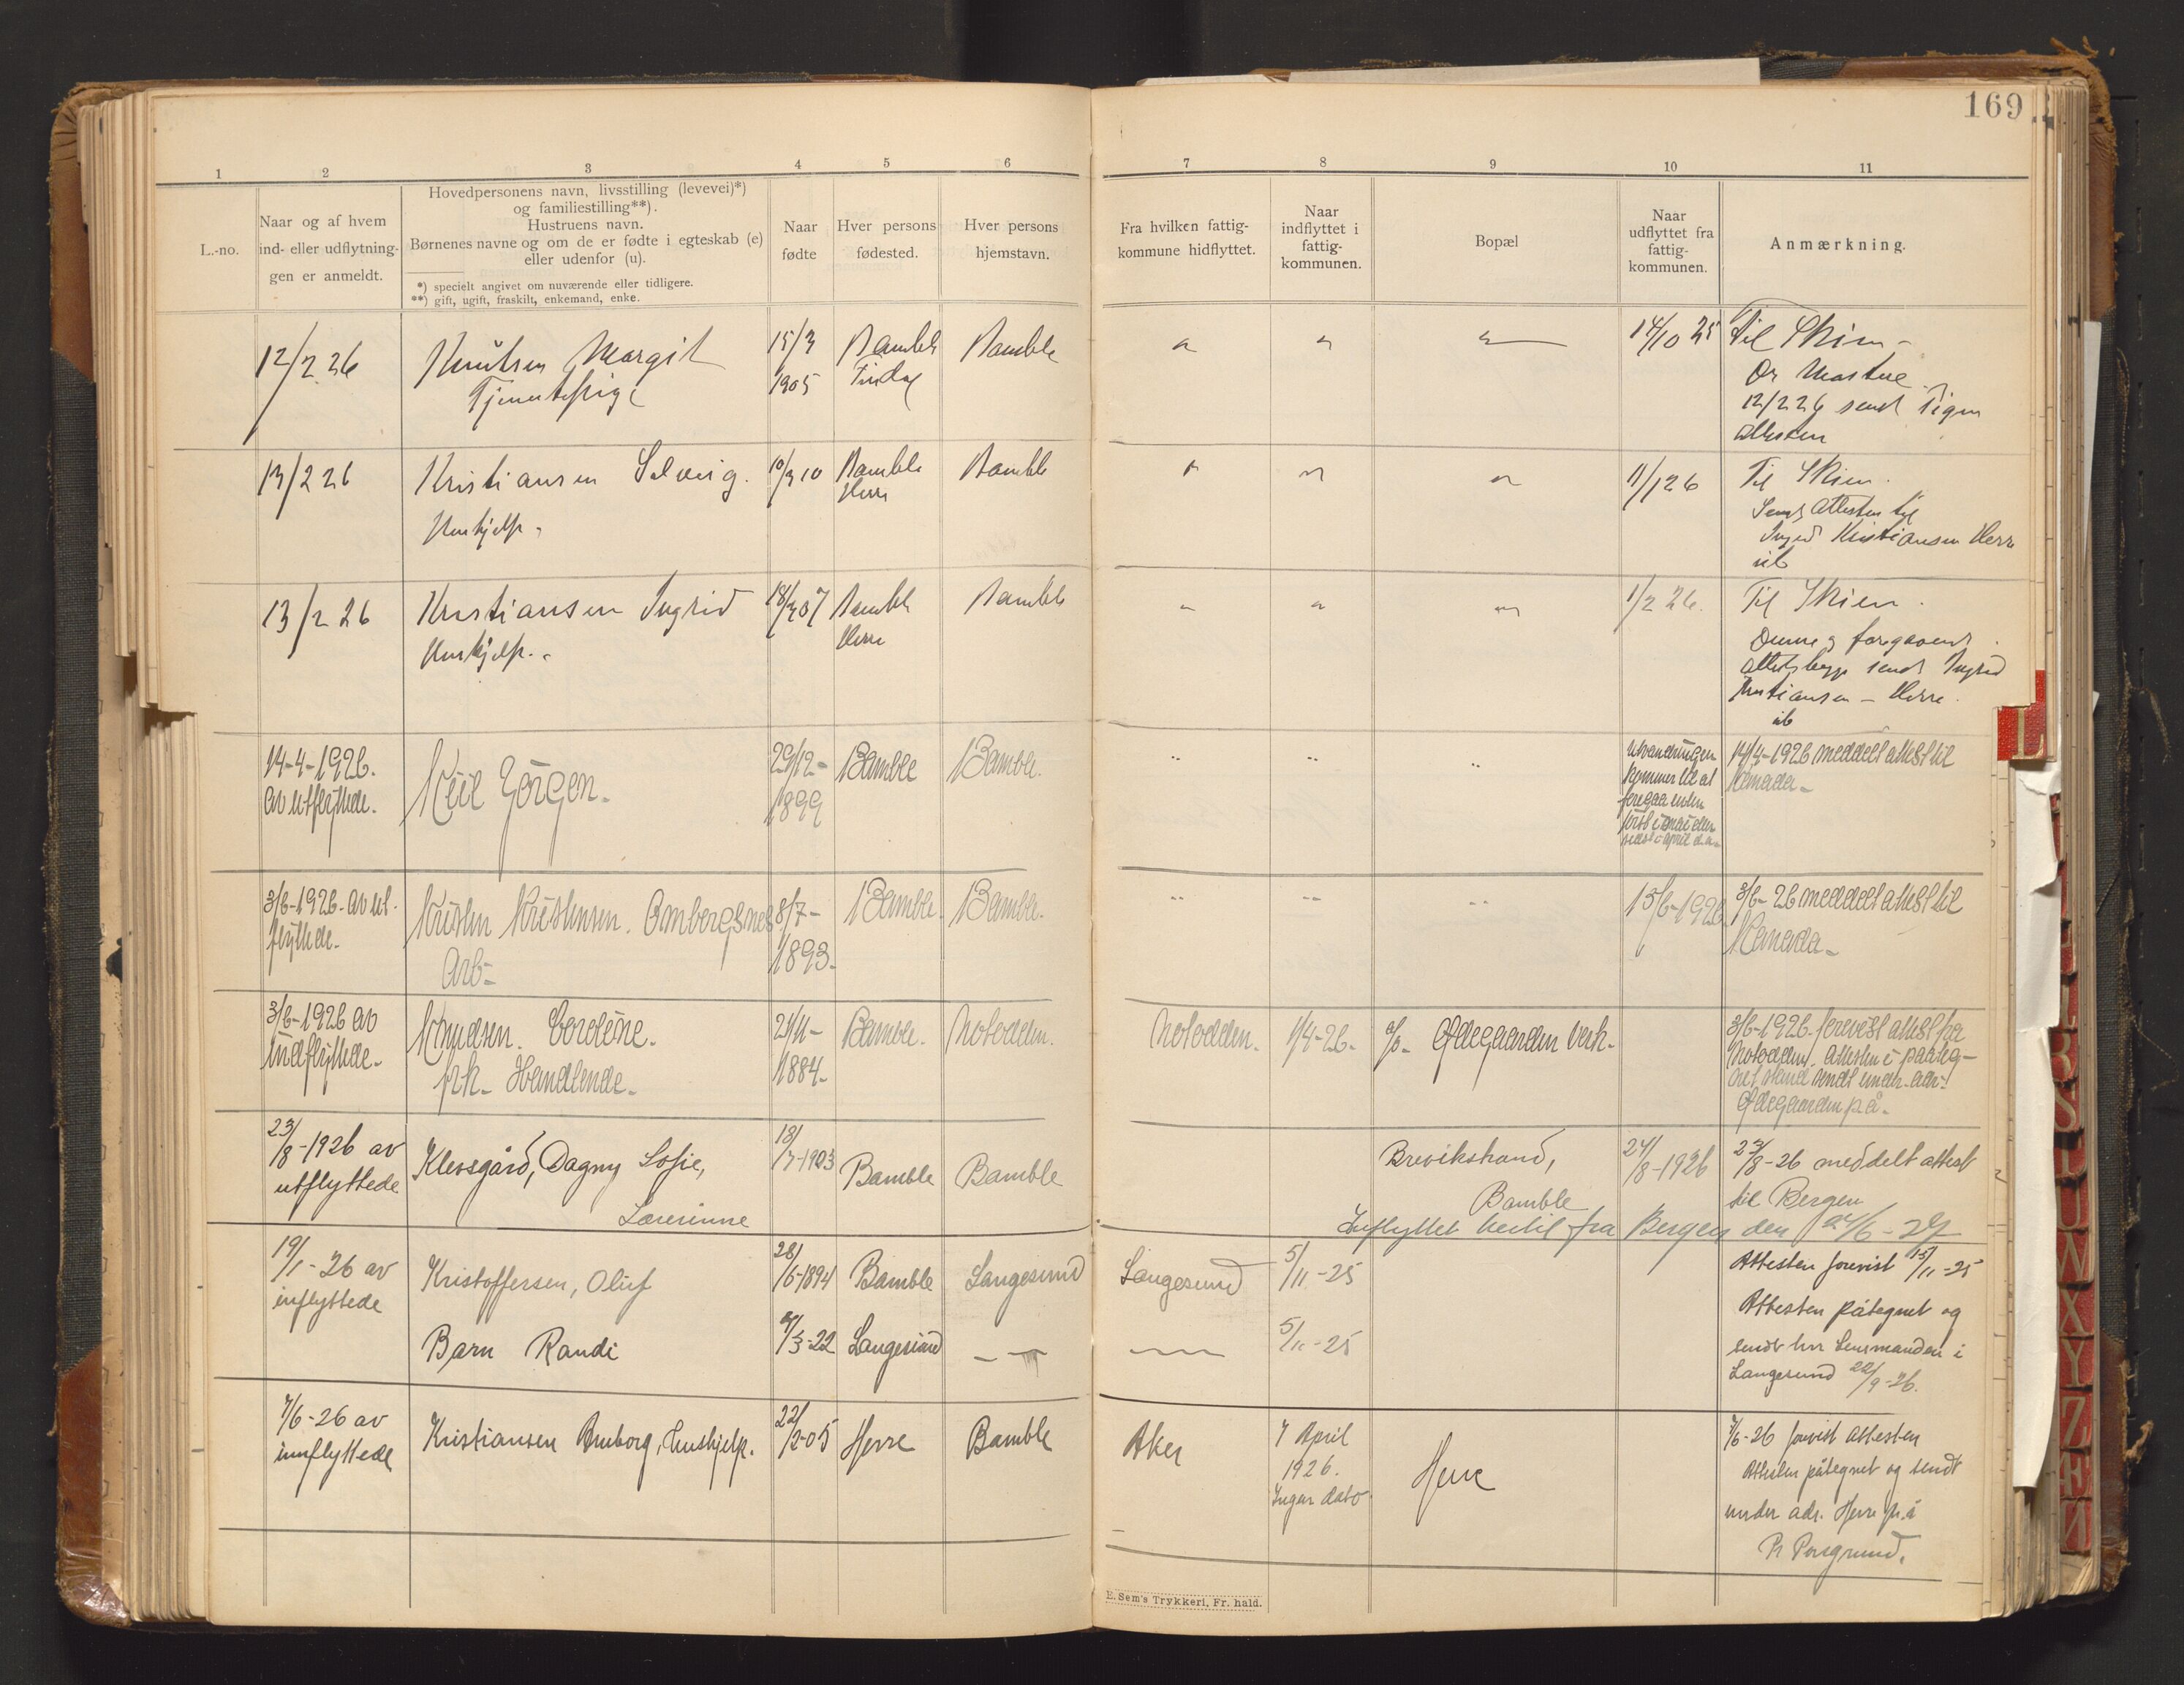 169
1 2 3 4 5 6 7 8 9 10 11
L.-no.
Naar og af hvem
ind- eller udflytnin-
gen er anmeldt.
Hovedpersonens navn, livsstilling (levevei)*)
og familiestilling**).
Hustruens navn.
Børnenes navne og om de er fødte i egteskab (e)
eller udenfor (u).
*) specielt angivet om nuværende eller tidligere.
**) gift, ugift, fraskilt, enkemand, enke.
Naar
fødte
Hver persons
fødested.
Hver persons
hjemstavn.
Fra hvilken fattig-
kommune hidflyttet.
Naar
indflyttet i
fattig-
kommunen.
Bopæl
Naar
udflyttet fra
fattig-
kommunen.
Anmærkning.
12/2 26
Knutsen Margit
Tjenestepige
15/3
1905
Bamble
Bamble
14/10 25
Til Skien -
12/2 26 sendt Pigen
attesten
13/2 26
Kristiansen Solveig.
Hushjelp.
10/3 10
Bamble
Herre
Bamble
11/1 26
Til Skien.
Sendt attesten til
Ingrid Kristiansen Herre
13/2 26
Kristiansen Ingrid
Hushjelp.
18/3 07
Bamble
Herre
Bamble
1/2 26.
Til Skien.
Denne og foregaaende
attest begge sendt Ingrid
Kristiansen - Herre.
14-4-1926.
av utflyttede.
Keil Görgen.
29/12-
1899
Bamble
Bamble.
Utvandringen
kommer til at
foregaa enten
først i mai eller
sidst i april d.a.
14/4-1926 meddelt attest til
Kanada-
3/6-1926. av ut-
flyttede.
Kristen Kristensen. Ombergsnes
Arb-
8/7-
1893-
Bamble.
Bamble.
15/6-1926
3/6-26 meddelt attest til
Kanada-
3/6-1926 av
indflyttede-
Knudsen.
frk- Handlende-
21/11-
1884-
Bamble.
Notodden.
Notodden.
1/4-26.
Ødegaarden Verk-
3/6-1926. forevist attest fra
Notodden. Attesten i paateg-
net stand sendt under adr.
Ødegaarden på.
23/8-1926 av
utflyttede
Klevsgård, Dagny Sofie,
Lærerinne
18/7-1903
Bamble
Bamble
Brevikstrand,
Bamble
24/8-1926
23/8-26 meddelt attest
til Bergen
Inflyttet hertil fra Bergen den 24/6-27
19/1-26 av
inflyttede
Kristoffersen, Oluf
28/6-1894
Bamble
Langesund
Langesund
5/11-25
Attesten forevist 15/11-25
Attesten påtegnet og
sendt hr Lensmanden i
Langesund 22/9-26.
Barn Randi
9/3-22
Langesund
5/11-25
7/6-26 av
innflyttede
Kristiansen Amborg, Hushjelp.
22/2-05
Herre
Bamble
Aker
7 April
1926.
Ingen dato
Herre
7/6-26 forevist attesten
Attesten påtegnet og sendt
under adr. Herre p.å
Pr Porsgrund.
E. Sem's Trykkeri, Fr. hald.
L
U
W
X
Y
Z
Æ